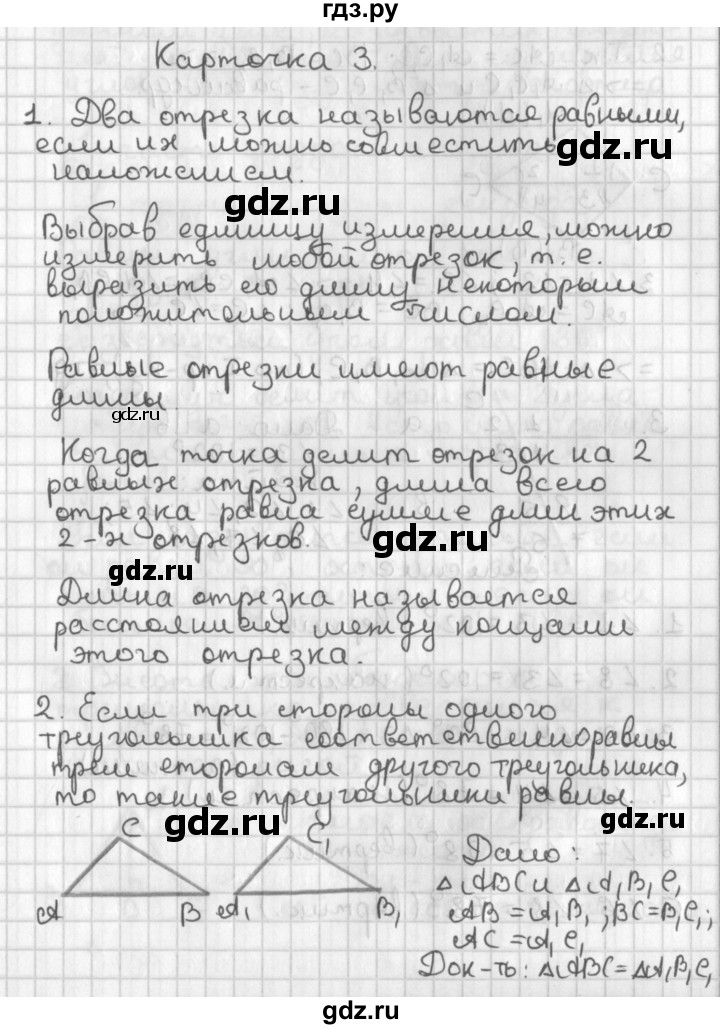 гдз.ру
Карточка 3.
1. Два отрезка называются равными,
если их можно совместить
наложением.
gdz.ru
gdz.ru
Выбрав единицу измерения, можно
измерить любой отрезок, т.е.
выразить его длину некоторым
положительным числом.
Равные отрезки имеют равные
длины
gdz.ru
Когда точка делит отрезок на 2
равных отрезка, длина всего
отрезка равна сумме длин этих
2-х отрезков.
gdz.ru
gdz.ru
Длина отрезка называется
расстоянием между концами
этого отрезка.
2. Если три стороны одного
треугольника соответственно равны
трем сторонам другого треугольника,
то такие треугольники равны.
gdz.ru
C
C₁
A
B
A₁
B₁
Дано:
△ABC и △A₁B₁C₁
AB = A₁B₁; BC = B₁C₁;
AC = A₁C₁
Док-ть: △ABC = △A₁B₁C₁
gdz.ru